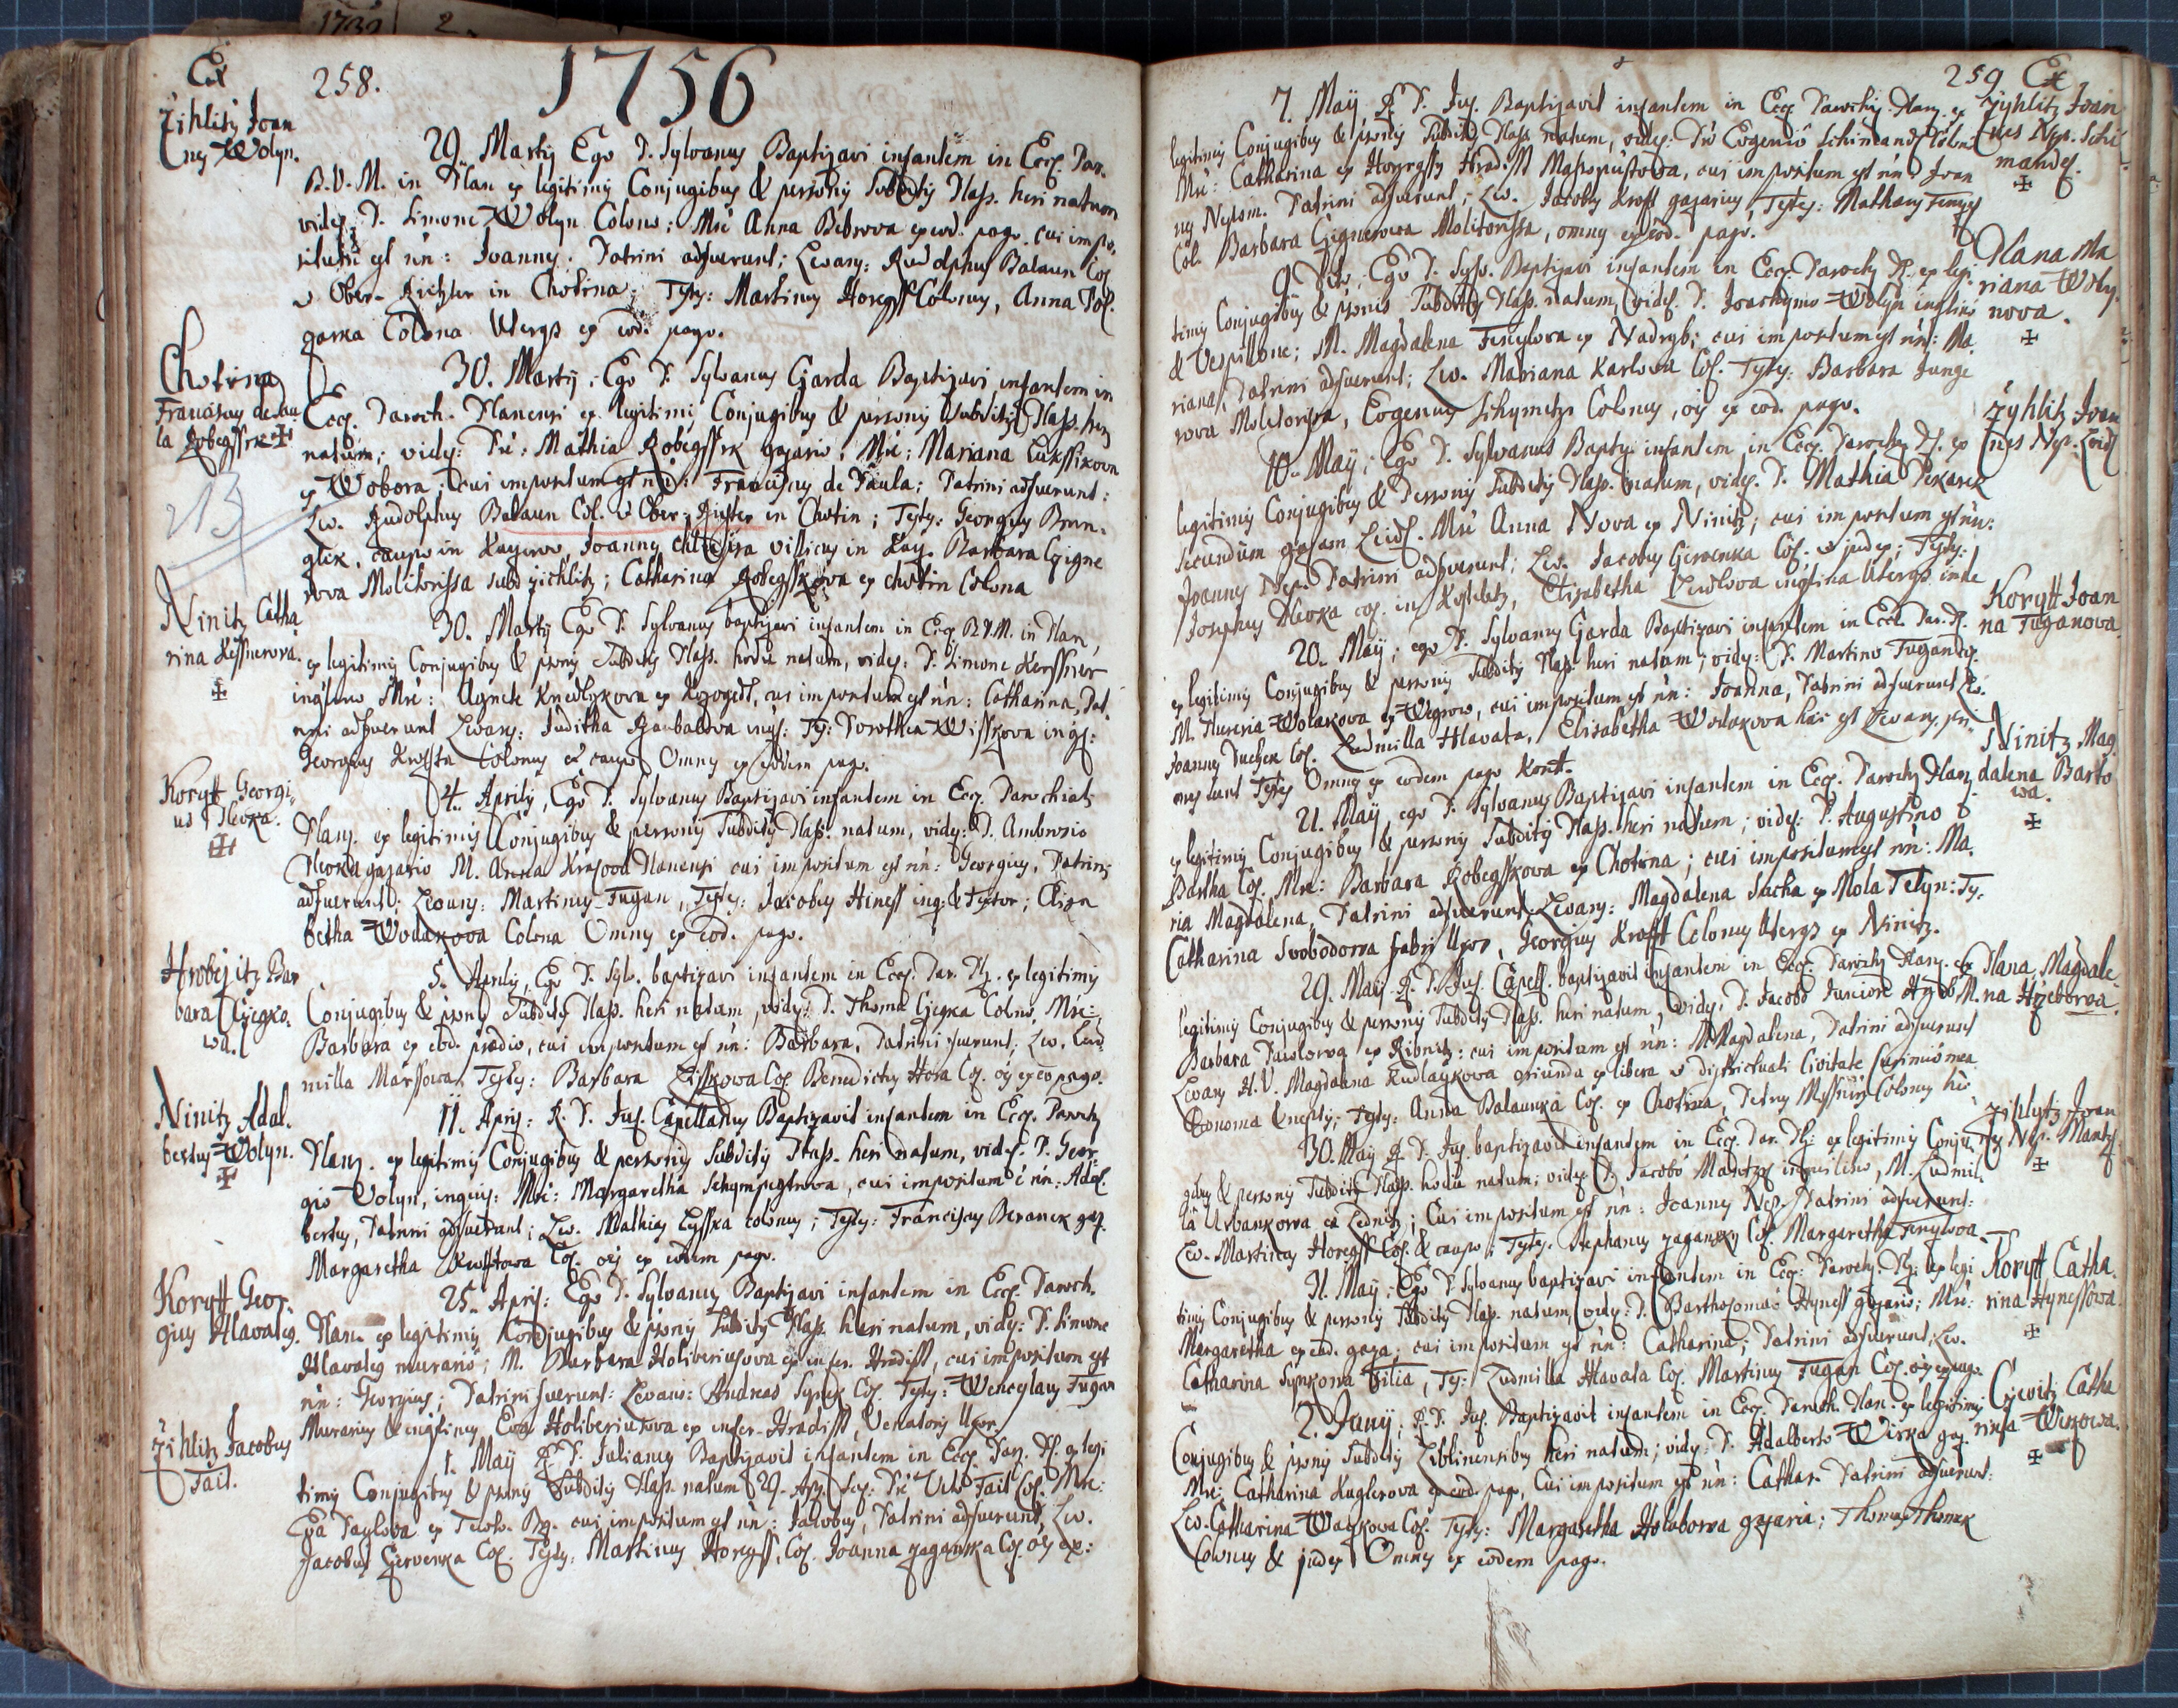 1732 2
Ex
258.
1756
Zihlitz Joan
nes Wolyn.
29. Martij Ego P. Sylvanus Baptizavi infantem in Eccl. Par.
B.V.M. in Plan ex legitimis Conjugibus & personis Subditis Plass. heri natum
videl. P. Simone Wolyn Colono: Mre Anna Bebrova ex eod. pago. cui impo
situm est nn: Joannes. Patrini adfuerunt; Levans: Rudolphus Balaun Col
& Ober-Richter in Chotina; Testes: Martinus Horegss Colonus, Anna Pol.
garka Colona Uterqs ex eod. pago.
Chotina
Franciscus de Pau
la Kobegssek
30. Martij; Ego P. Sylvanus Gjarda Baptizavi infantem in
Eccl. Paroch. Planensi ex legitimis Conjugibus & personis Subditis Plass. heri
natum; videl: Pre: Mathia Kobegssek gazario; Mre: Mariana Lukssikova
ex Wobora; cui impositum est nn: Franciscus de Paula; Patrini adfuerunt:
Lev. Rudolphus Balaun Col. & Ober-Richter in Chotin; Testes: Georgius Brun-
glik, caupo in Kaczerov, Joannes villicus in Kacz. Barbara Czigne
rova Molitorissa sub Zichlitz; Catharina Kobegsskova ex Chotin Colona
213
Ninitz Catha
rina Kessnerova.
30. Martij Ego P. Sylvanus baptizavi infantem in Eccl. B.V.M. in Plan,
ex legitimis Conjugibus & psonis Subditis Plass. hodie natum, videl: P. Simone Kerssner
inquilino Mre: Agnete Knedlykova ex Kozoged, cui impositum est nn: Catharina, Pat.
rini adfuerunt Levans: Juditha Barbalova inqs: Ts: Dorothea Wisskova inqs:
Georgius Krofta Colonus & caupo Omnes ex eodem pago.
Koryt Georgi
us Plevka.
4. Aprilis, Ego P. Sylvanus Baptizavi infantem in Eccl. Parochiali
Planz. ex legitimis Conjugibus & personis Subditis Plass. natum, videl: P. Ambrosio
Plevka gazario M. Anna Planensi cui impositum est nn: Georgius, Patrini
adfuerunt: Levans: Martinus Fugan, Testes: Jacobus Hiness inq: & Textor; Eliza
betha Wodakova Colona Omnes ex eod. pago.
Hrobczitz Bar
bara Czegko.
wa.
5. Aprilis, Ego P. Sylv. baptizavi infantem in Eccl. Par. Pl. ex legitimis
Conjugibus & psonis Subditis Plass. heri natum, videl: P. Thoma Czegka Colno, Mre:
Barbara ex eod. prædio, cui impositum est nn: Barbara, Patrini fuerunt; Lev. Lud
milla Marssowa, Testes: Barbara Lisskowa Col. Benedictus Hora Col. oes ex eo pago.
Ninitz Adal.
bertus Wolyn.
11. Apris: R. P. Jul. Capellanus Baptizavit infantem in Eccl. Paroch
Planz. ex legitimis Conjugibus & personis Subditis Plass. heri natum, videl. P. Geor
gio Volyn, inquis: Mre: Margaretha, cui impositum e nn: Adal.
bertus, Patrini adfuerunt; Lev. Mathias Lysska colonus; Testes: Franciscus Beranek gaz.
Margaretha Krofftowa Col. oes ex eodem pago.
Koryt Geor.
gius Hlavatey.
25. Apris: Ego P. Sylvanus Baptizavi infantem in Eccl. Paroch.
Plan. ex legitimis Conjugibus & psonis Subditis Plass. heri natum, videl: P. Simone
Hlavatey murario; M. Barbara Holiveriusova ex infer. Hradisst, cui impositum est
nn: Georgius; Patrini fuerunt: Levans: Andreas Synek Col. Testes: Wenceslaus Fugan
Murarius & inquilinus, Eva Holiveriusova ex infer-Hradisst, Venatoris Uxor.
Zihlitz Jacobus
Fait.
1. Maij R. P. Julianus Baptizavit infantem in Eccl. Par. Pl. ex legi
timis Conjugibus & psonis Subditis Plass. natum 29. Apr. Pre Vito Fait Col. Mre:
Eva Paylova ex cui impositum est nn: Jacobus, Patrini adfuerunt, Lev.
Jacobus Czervenka Col. Testes: Martinus Horegss, Col. Joanna Zagamka Col. oes ex:
259 Ex
7. Maij R. P. Jul. Baptizavit infantem in Eccl. Parochij. Planz. ex
legitimis Conjugibus & psonis Subditis Plass. natum, videl: Pre Eugenio Schimandl Colono
Mre: Catharina ex M. Massopustova, cui impositum est nn: Joan
nes Nepom. Patrini adfuerunt; Lev. Jacobus Krofft gazarius, Testes: Mathaus
Col. Barbara Czignerova Molitorissa, omnes ex eod. pago.
Zyhlitz Joan
nes Nep. Schi
mandl.
9 Dito; Ego P. Sylv. Baptizavi infantem in Eccl. Paroch. Pl. ex legi
timis Conjugibus & psonis Subditis Plass. natum, videl. P. Joachymo Wolyn inqlino
& Vespillone; M. Magdalena ex Nadryb; cui impositum est nn: Ma
riana, Patrini adfuerunt; Lev. Mariana Karlova Col. Testes: Barbara Junge
rova Molitorissa, Eugenius Colonus, oes ex eod. pago.
Plana Ma
riana Woly.
nova.
10. Maij; Ego P. Sylvanus Baptiz. infantem in Eccl. Paroch. Pl. ex
legitimis Conjugibus & Personis Subditis Plass. natum, videl. P. Mathia Pekarek
secundum gazam Leidl. Mre Anna Nova ex Ninitz; cui impositum est nn:
Joannes Nep. Patrini adfuerunt; Lev. Jacobus Czervenka Col. & judex; Testes:
Josephus Plevka col. in Kosteletz, Elisabetha inqlina Uterqs inde
Zyhlitz Joan
nes Nep. Leidl
20. Maij; ego P. Sylvanus Gjarda Baptizavi infantem in Eccl. Par. Pl.
ex legitimis Conjugibus & personis Subditis Plass. heri natam; videl: P. Martino Fugan Col.
M. Wolakova ex Wegrow, cui impositum est nn: Joanna, Patrini adfuerunt Lev.
Joannes Tuchek Col. Ludmilla Hlavata, Elisabetha Wodakova
Testes Omnes ex eodem pago Koryt.
Koryt Joan
na Fuganova.
21. Maij, ego P. Sylvanus Baptizavi infantem in Eccl. Paroch. Planz.
ex legitimis Conjugibus & personis Subditis Plass. heri natum; videl: P. Augustino
Bartha Col. Mre: Barbara Kobegsskowa ex Chotina; cui impositum est nn: Ma
ria Magdalena, Patrini adfuerunt Levans: Magdalena Sucha ex Mola Tetyn: Ts:
Catharina Svobodova fabri Uxor, Georgius Krofft Colonus Uterqs ex Ninitz.
Ninitz Mag
dalena Barto
wa.
29. Maij R. P. Jul. Capell. baptizavit infantem in Eccl. Paroch. Planz. ex
legitimis Conjugibus & personis Subditis Plass. heri natum, videl: P. Jacobo Juniore M.
Barbara Pawlowa ex Ribnitz: cui impositum est nn: Magdalena, Patrini adfuerunt
Levans H.V. Magdalena Kudlaykowa oriunda ex libera & districtuali Civitate
Testes: Anna Balaunka Col. ex Chotina, Petrus Colonus hic
Plana Magdale.
na Hrzebowa.
30. Maij R. P. Jul. baptizavit infantem in Eccl. Par. Pl: ex legitimis Conju
gibus & personis Subditis Plass. hodie natum; videl P. Jacobo inquilino, M. Ludmil.
la Urbankowa ex Lednitz; Cui impositum est nn: Joannes Nep. Patrini adfuerunt:
Lev. Martinus Horegss Col. & caupo; Testes: Stephanus Col. Margaretha
Zihlytz Joan
nes Nep.
31. Maij; Ego P. Sylvanus baptizavi infantem in Eccl: Paroch. Pl: ex legi
timis Conjugibus & personis Subditis Plass. natum, videl: P. Bartholomæo Hyness gazario; Mre:
Margaretha ex eod. gaza; cui impositum est nn: Catharina; Patrini adfuerunt: Lev.
Catharina Synkowa filia, Ts: Ludmilla Hlavata Col. Martinus Fugan Col. oes ex pago.
Koryt Catha.
rina Hynessowa
2. Junij, R. P. Jul. Baptizavit infantem in Eccl. Paroch. Plan. ex legitimis
Conjugibus & psonis Subditis Liblinensibus heri natum; videl: P. Adalberto Wirka gaz.
Mre: Catharina Kuglerova ex eod. pago, Cui impositum est nn: Cathar. Patrini adfuerunt:
Lev. Catharina Waczkowa Col. Testes: Margaretha Holubowa gazaria; Thomas Thomek
Colonus & judex Omnes ex eodem pago.
Czivitz Catha
rina Wirkowa.